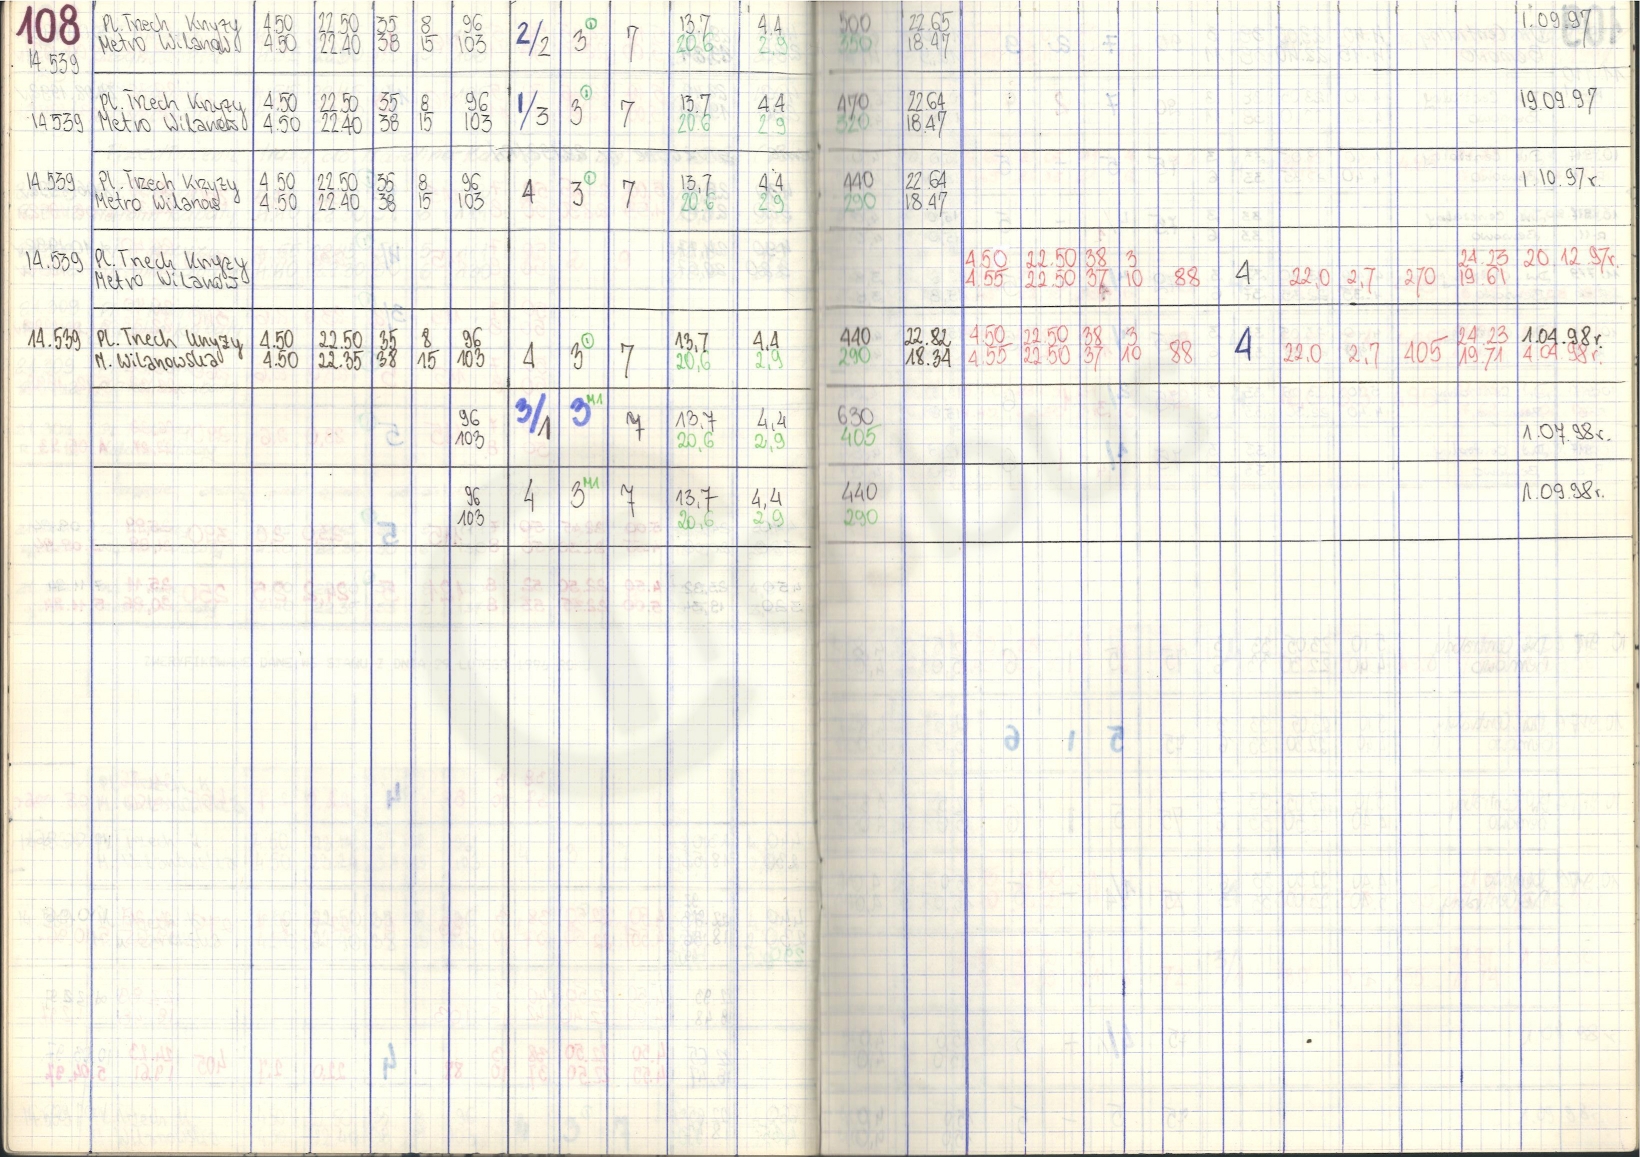 108 Pl. Trzech Krzyży 4.50 22.50 35 8 96 2/2 3① 7 13.7 4.4 500 22.65 1.09.97
Metro Wilanow 4.50 22.40 38 15 103 20.6 2.9 350 18.47
14.539
Pl. Trzech Krzyży 4.50 22.50 35 8 96 1/3 3① 7 13.7 4.4 470 22.64 19.09.97
14.539 Metro Wilanów 4.50 22.40 38 15 103 20.6 2.9 320 18.47
14.539 Pl. Trzech Krzyży 4.50 22.50 35 8 96 4 3① 7 13,7 4.4 440 22.64 1.10.97r.
Metro Wilanów 4.50 22.40 38 15 103 20.6 2.9 290 18.47
14.539 Pl. Trzech Krzyży 4.50 22.50 38 3 24.23 20.12.97r.
Metro Wilanów 4.55 22.50 37 10 88 4 22,0 2,7 270 19.61
14.539 Pl. Trzech Krzyży 4.50 22.50 35 8 96 4 3① 7 13,7 4,4 440 22.82 4.50 22.50 38 3 24.23 1.04.98r.
M. Wilanowska 4.50 22.35 38 15 103 20,6 2,9 290 18.34 4.55 22.50 37 10 88 4 22,0 2,7 405 19.71 4.04.98r.
96 3/1 3M1 7 13,7 4,4 630
103 20,6 2,9 405 1.07.98r.
96 4 3M1 7 13,7 4,4 440 1.09.98r.
103 20,6 2,9 290